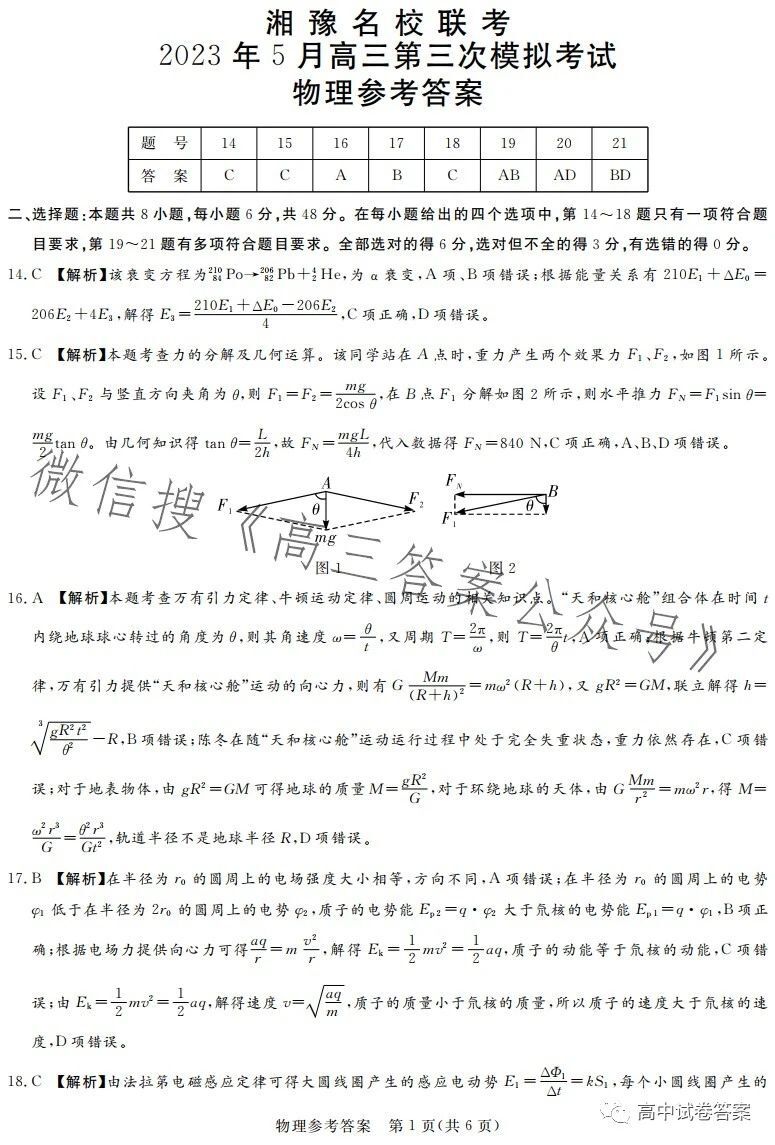 湘豫名校联考
2023年5月高三第三次模拟考试
物理参考答案
题 号 14 15 16 17 18 19 20 21
答 案 C C A B C AB AD BD
二、选择题:本题共8小题,每小题6分,共48分。在每小题给出的四个选项中,第14～18题只有一项符合题
目要求,第19～21题有多项符合题目要求。全部选对的得6分,选对但不全的得3分,有选错的得0分。
14. C 【解析】该衰变方程为²¹⁰₈₄Po→²⁰⁶₈₂Pb+⁴₂He,为α衰变,A项、B项错误;根据能量关系有210E₁+ΔE₀=
206E₂+4E₃,解得E₃=(210E₁+ΔE₀-206E₂)/4,C项正确,D项错误。
15. C 【解析】本题考查力的分解及几何运算。该同学站在A点时,重力产生两个效果力F₁、F₂,如图1所示。
设F₁、F₂与竖直方向夹角为θ,则F₁=F₂=mg/(2cos θ),在B点F₁分解如图2所示,则水平推力F_N=F₁sin θ=
mg/2 tan θ。由几何知识得tan θ=L/2h,故F_N=mgL/4h,代入数据得F_N=840 N,C项正确,A、B、D项错误。
F₁ A θ F₂ mg F_N B θ F₁
图1 图2
16. A 【解析】本题考查万有引力定律、牛顿运动定律、圆周运动的相关知识点。“天和核心舱”组合体在时间t
内绕地球球心转过的角度为θ,则其角速度ω=θ/t,又周期T=2π/ω,则T=2π/θ t,A项正确;根据牛顿第二定
律,万有引力提供“天和核心舱”运动的向心力,则有G Mm/(R+h)²=mω²(R+h),又gR²=GM,联立解得h=
³√(gR²t²/θ²)-R,B项错误;陈冬在随“天和核心舱”运动运行过程中处于完全失重状态,重力依然存在,C项错
误;对于地表物体,由gR²=GM可得地球的质量M=gR²/G,对于环绕地球的天体,由G Mm/r²=mω²r,得M=
ω²r³/G=θ²r³/Gt²,轨道半径不是地球半径R,D项错误。
17. B 【解析】在半径为r₀的圆周上的电场强度大小相等,方向不同,A项错误;在半径为r₀的圆周上的电势
φ₁低于在半径为2r₀的圆周上的电势φ₂,质子的电势能E_p2=q·φ₂大于氚核的电势能E_p1=q·φ₁,B项正
确;根据电场力提供向心力可得aq/r=m v²/r,解得E_k=1/2 mv²=1/2 aq,质子的动能等于氚核的动能,C项错
误;由E_k=1/2 mv²=1/2 aq,解得速度v=√(aq/m),质子的质量小于氚核的质量,所以质子的速度大于氚核的速
度,D项错误。
18. C 【解析】由法拉第电磁感应定律可得大圆线圈产生的感应电动势E₁=ΔΦ₁/Δt=kS₁,每个小圆线圈产生的
物理参考答案 第1页(共6页)
高中试卷答案
微信搜《高三答案公众号》